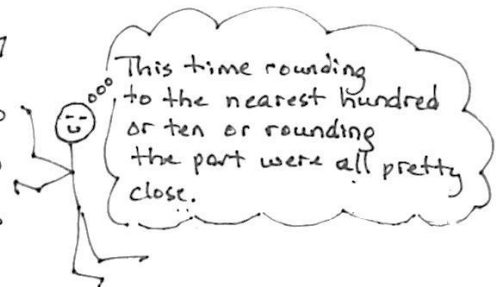 This time rounding
to the nearest hundred
or ten or rounding
the part were all pretty
close.